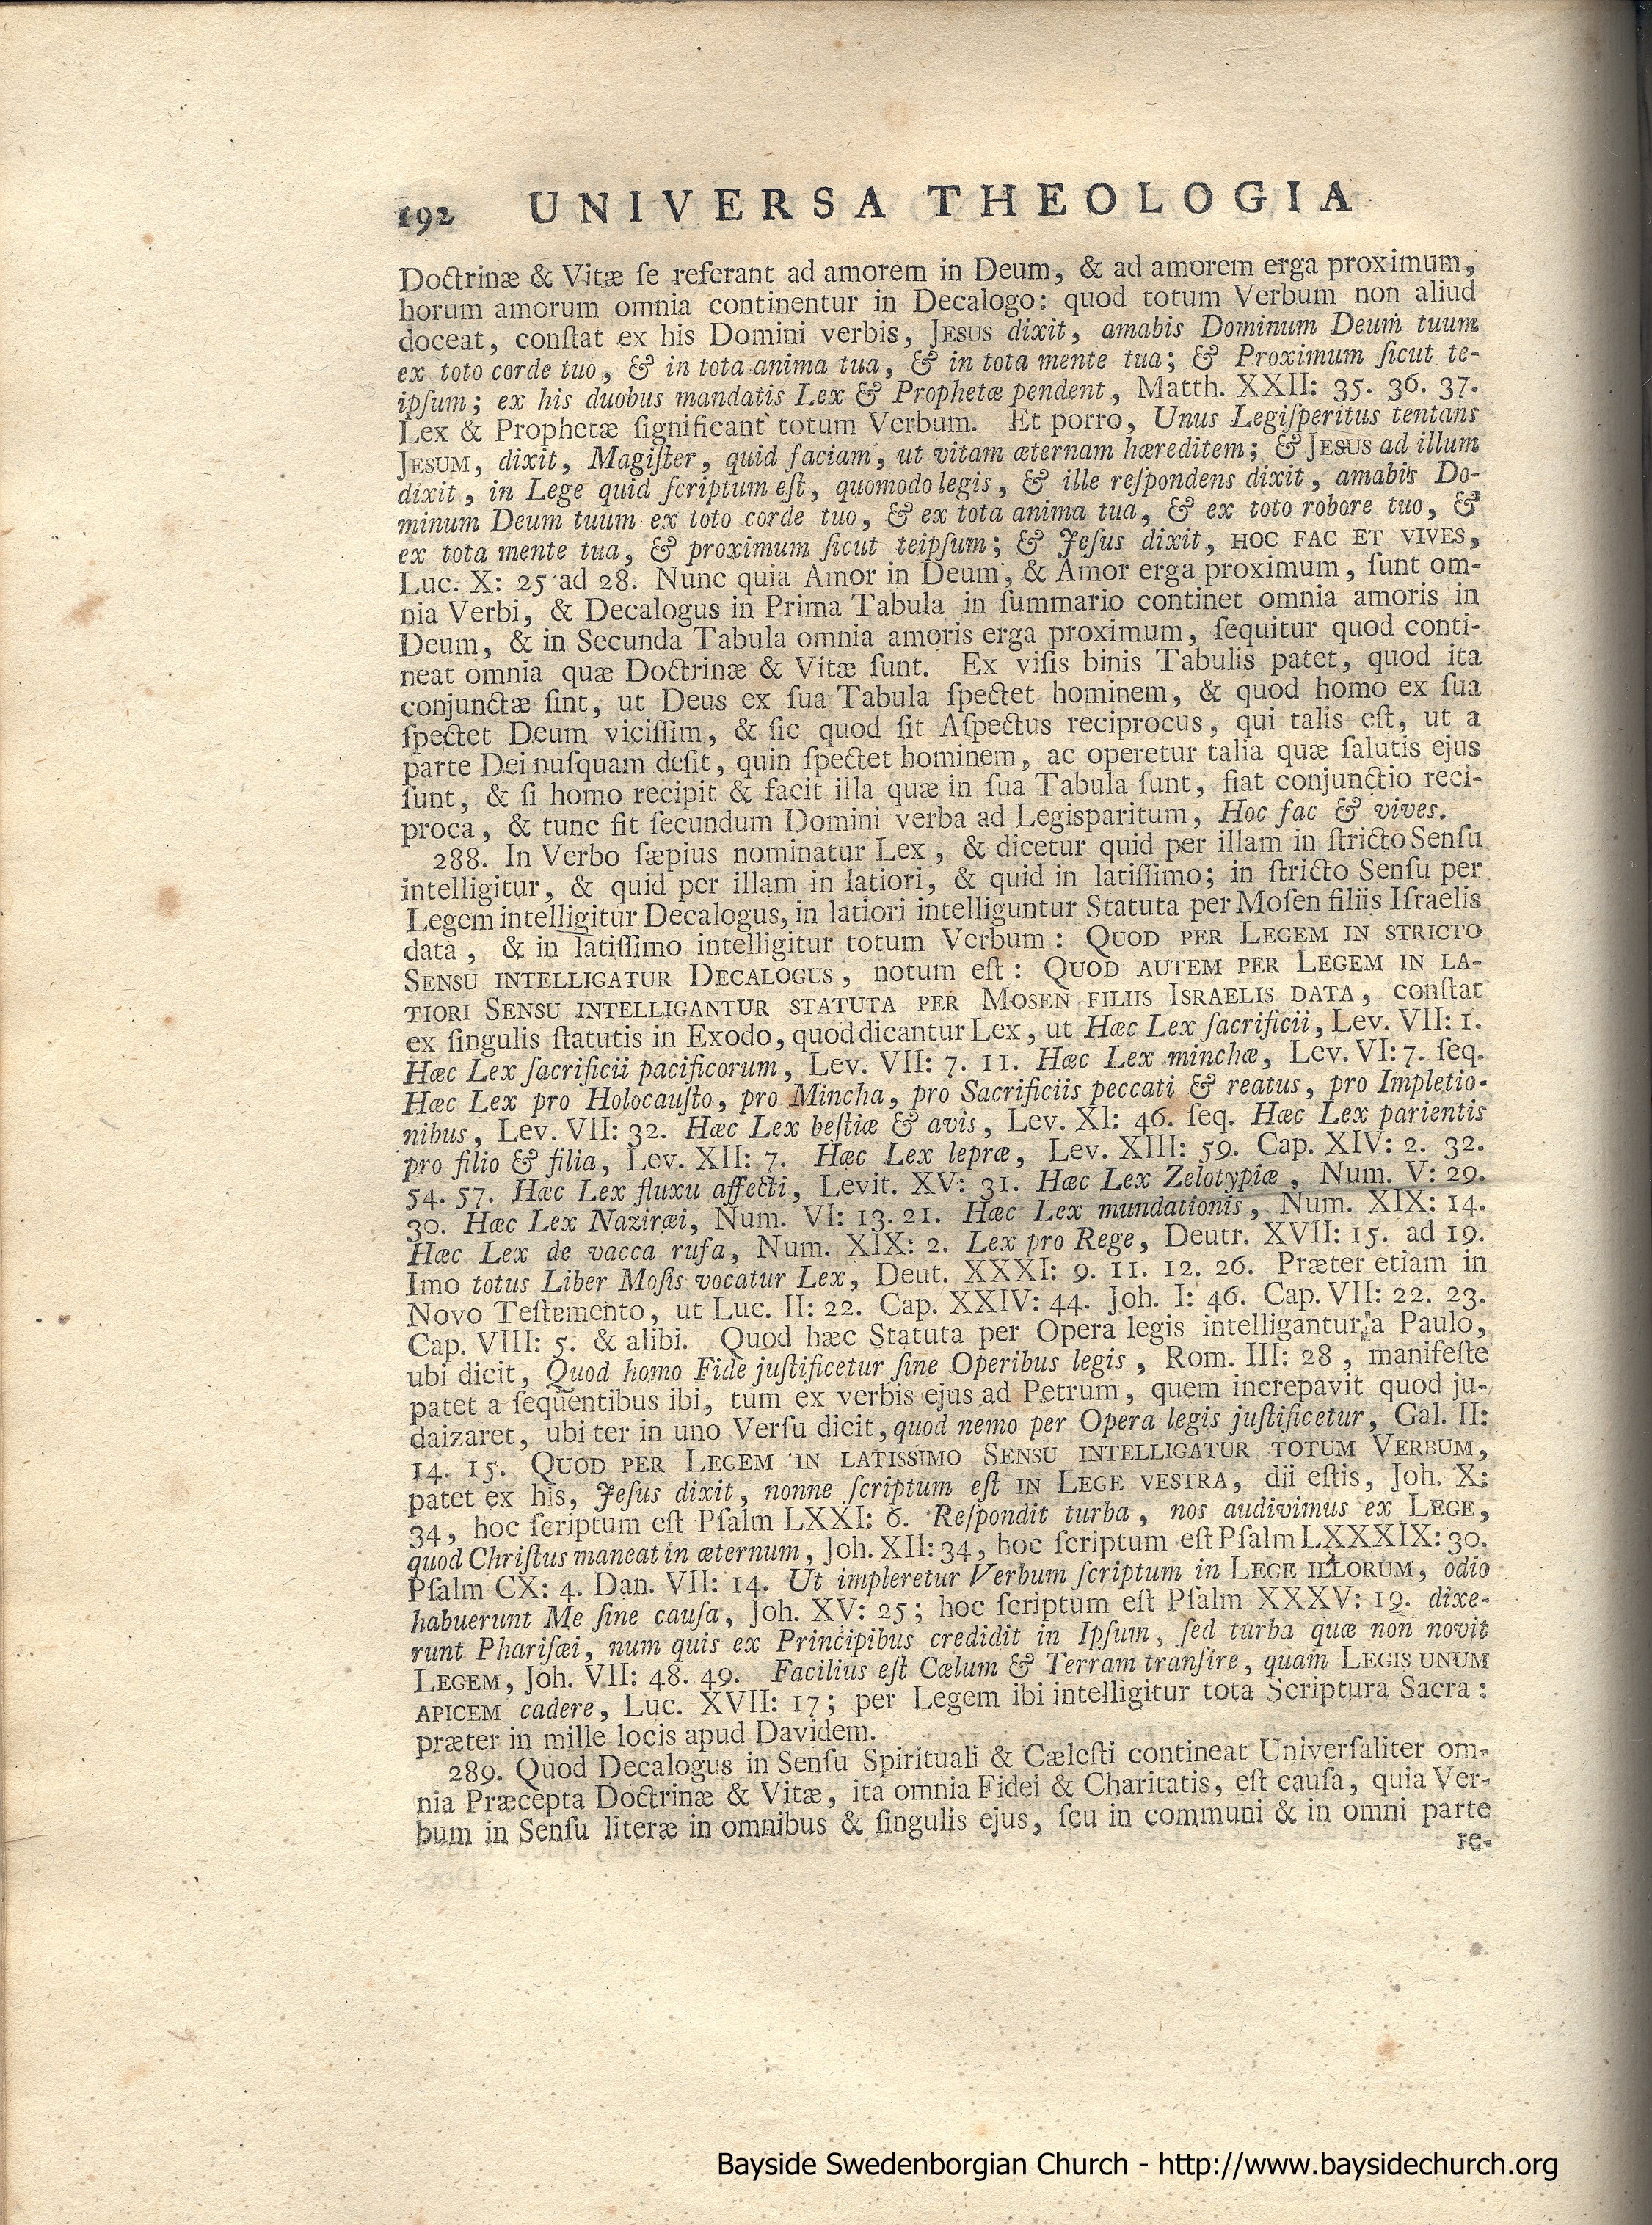 192 UNIVERSA THEOLOGIA
Doctrinæ & Vitæ ſe referant ad amorem in Deum, & ad amorem erga proximum,
horum amorum omnia continentur in Decalogo: quod totum Verbum non aliud
doceat, conſtat ex his Domini verbis, JESUS dixit, amabis Dominum Deum tuum
ex toto corde tuo, & in tota anima tua, & in tota mente tua; & Proximum ſicut te-
ipſum; ex his duobus mandatis Lex & Prophetæ pendent, Matth. XXII: 35. 36. 37.
Lex & Prophetæ ſignificant totum Verbum. Et porro, Unus Legiſperitus tentans
JESUM, dixit, Magiſter, quid faciam, ut vitam æternam hæreditem; & JESUS ad illum
dixit, in Lege quid ſcriptum eſt, quomodo legis, & ille reſpondens dixit, amabis Do-
minum Deum tuum ex toto corde tuo, & ex tota anima tua, & ex toto robore tuo, &
ex tota mente tua, & proximum ſicut teipſum; & Jeſus dixit, HOC FAC ET VIVES,
Luc. X: 25 ad 28. Nunc quia Amor in Deum, & Amor erga proximum, ſunt om-
nia Verbi, & Decalogus in Prima Tabula in ſummario continet omnia amoris in
Deum, & in Secunda Tabula omnia amoris erga proximum, ſequitur quod conti-
neat omnia quæ Doctrinæ & Vitæ ſunt. Ex viſis binis Tabulis patet, quod ita
conjunctæ ſint, ut Deus ex ſua Tabula ſpectet hominem, & quod homo ex ſua
ſpectet Deum viciſſim, & ſic quod ſit Aſpectus reciprocus, qui talis eſt, ut a
parte Dei nuſquam deſit, quin ſpectet hominem, ac operetur talia quæ ſalutis ejus
ſunt, & ſi homo recipit & facit illa quæ in ſua Tabula ſunt, fiat conjunctio reci-
proca, & tunc fit ſecundum Domini verba ad Legisparitum, Hoc fac & vives.
288. In Verbo ſæpius nominatur Lex, & dicetur quid per illam in ſtricto Senſu
intelligitur, & quid per illam in latiori, & quid in latiſſimo; in ſtricto Senſu per
Legem intelligitur Decalogus, in latiori intelliguntur Statuta per Moſen filiis Iſraelis
data, & in latiſſimo intelligitur totum Verbum: QUOD PER LEGEM IN STRICTO
SENSU INTELLIGATUR DECALOGUS, notum eſt: QUOD AUTEM PER LEGEM IN LA-
TIORI SENSU INTELLIGANTUR STATUTA PER MOSEN FILIIS ISRAELIS DATA, conſtat
ex ſingulis ſtatutis in Exodo, quod dicantur Lex, ut Hæc Lex ſacrificii, Lev. VII: 1.
Hæc Lex ſacrificii pacificorum, Lev. VII: 7. 11. Hæc Lex minchæ, Lev. VI: 7. ſeq.
Hæc Lex pro Holocauſto, pro Mincha, pro Sacrificiis peccati & reatus, pro Impletio-
nibus, Lev. VII: 32. Hæc Lex beſtiæ & avis, Lev. XI: 46. ſeq. Hæc Lex parientis
pro filio & filia, Lev. XII: 7. Hæc Lex lepræ, Lev. XIII: 59. Cap. XIV: 2. 32.
54. 57. Hæc Lex fluxu affecti, Levit. XV: 31. Hæc Lex Zelotypiæ, Num. V: 29.
30. Hæc Lex Naziræi, Num. VI: 13. 21. Hæc Lex mundationis, Num. XIX: 14.
Hæc Lex de vacca rufa, Num. XIX: 2. Lex pro Rege, Deutr. XVII: 15. ad 19.
Imo totus Liber Moſis vocatur Lex, Deut. XXXI: 9. 11. 12. 26. Præter etiam in
Novo Teſtemento, ut Luc. II: 22. Cap. XXIV: 44. Joh. I: 46. Cap. VII: 22. 23.
Cap. VIII: 5. & alibi. Quod hæc Statuta per Opera legis intelligantur a Paulo,
ubi dicit, Quod homo Fide juſtificetur ſine Operibus legis, Rom. III: 28, manifeſte
patet a ſequentibus ibi, tum ex verbis ejus ad Petrum, quem increpavit quod ju-
daizaret, ubi ter in uno Verſu dicit, quod nemo per Opera legis juſtificetur, Gal. II:
14. 15. QUOD PER LEGEM IN LATISSIMO SENSU INTELLIGATUR TOTUM VERBUM,
patet ex his, Jeſus dixit, nonne ſcriptum eſt IN LEGE VESTRA, dii eſtis, Joh. X:
34, hoc ſcriptum eſt Pſalm LXXI: 6. Reſpondit turba, nos audivimus ex LEGE,
quod Chriſtus maneat in æternum, Joh. XII: 34, hoc ſcriptum eſt Pſalm LXXXIX: 30.
Pſalm CX: 4. Dan. VII: 14. Ut impleretur Verbum ſcriptum in LEGE ILLORUM, odio
habuerunt Me ſine cauſa, Joh. XV: 25; hoc ſcriptum eſt Pſalm XXXV: 19. dixe-
runt Phariſæi, num quis ex Principibus credidit in Ipſum, ſed turba quæ non novit
LEGEM, Joh. VII: 48. 49. Facilius eſt Cælum & Terram tranſire, quam LEGIS UNUM
APICEM cadere, Luc. XVII: 17; per Legem ibi intelligitur tota Scriptura Sacra:
præter in mille locis apud Davidem.
289. Quod Decalogus in Senſu Spirituali & Cæleſti contineat Univerſaliter om-
nia Præcepta Doctrinæ & Vitæ, ita omnia Fidei & Charitatis, eſt cauſa, quia Ver-
bum in Senſu literæ in omnibus & ſingulis ejus, ſeu in communi & in omni parte
re-
Bayside Swedenborgian Church - http://www.baysidechurch.org